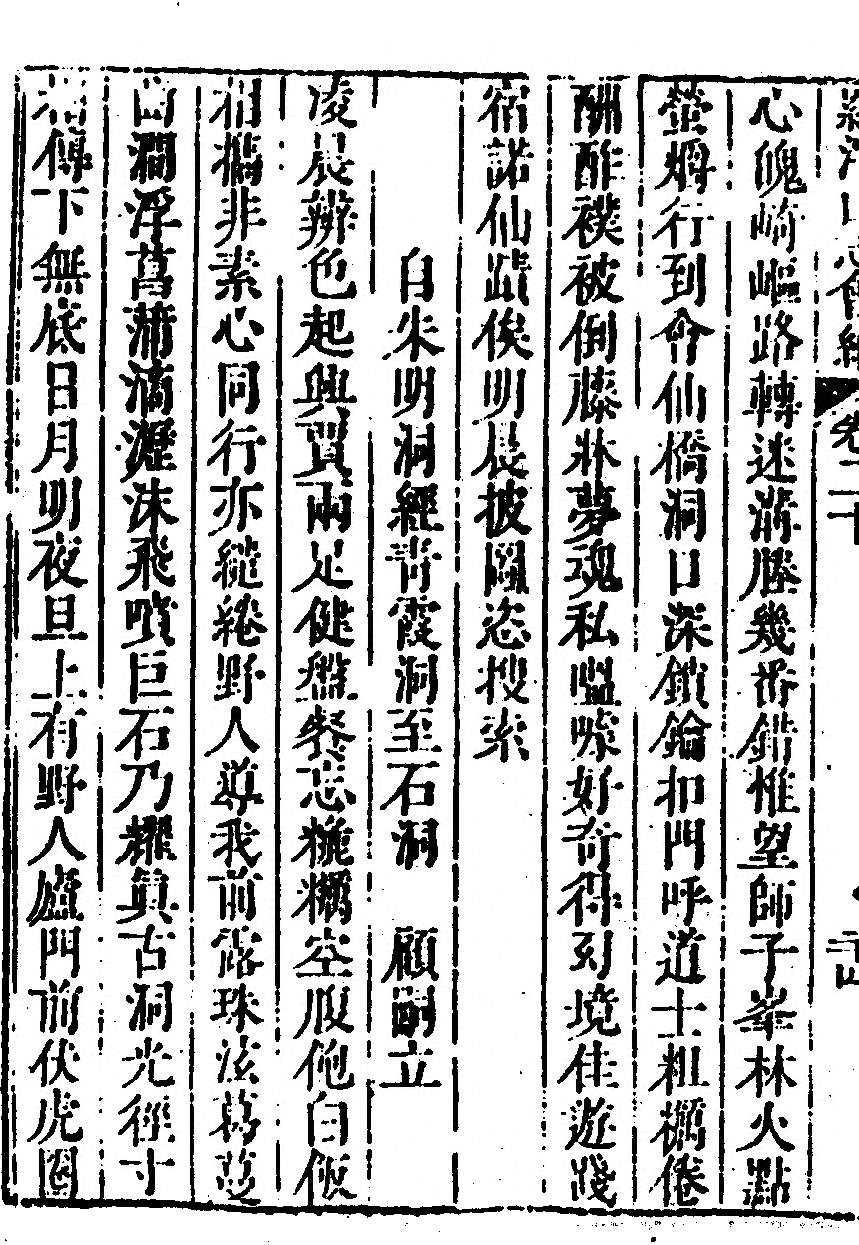 羅浮山志會編 卷二十 
心魄崎嶇路轉迷溝塍幾番錯惟望師子峯林火點
螢爝行到會仙橋洞口深鎖鑰扣門呼道士粗糲倦
酬酢襆被倒藤牀夢魂私嗢噱好奇得幻境佳遊踐
宿諾仙蹟俟明晨披圖恣搜索
自朱明洞經青霞洞至石洞 顧嗣立
凌晨辨色起興買兩足健盤餐忘糲空腹飽白飯
相攜非素心同行亦繾綣野人導我前露珠泫葛蔓
齒澗浮菖蒲滴瀝沫飛噴巨石乃耀眞古洞光徑寸
傳下無底日月明夜旦上有野人廬門前伏虎圈